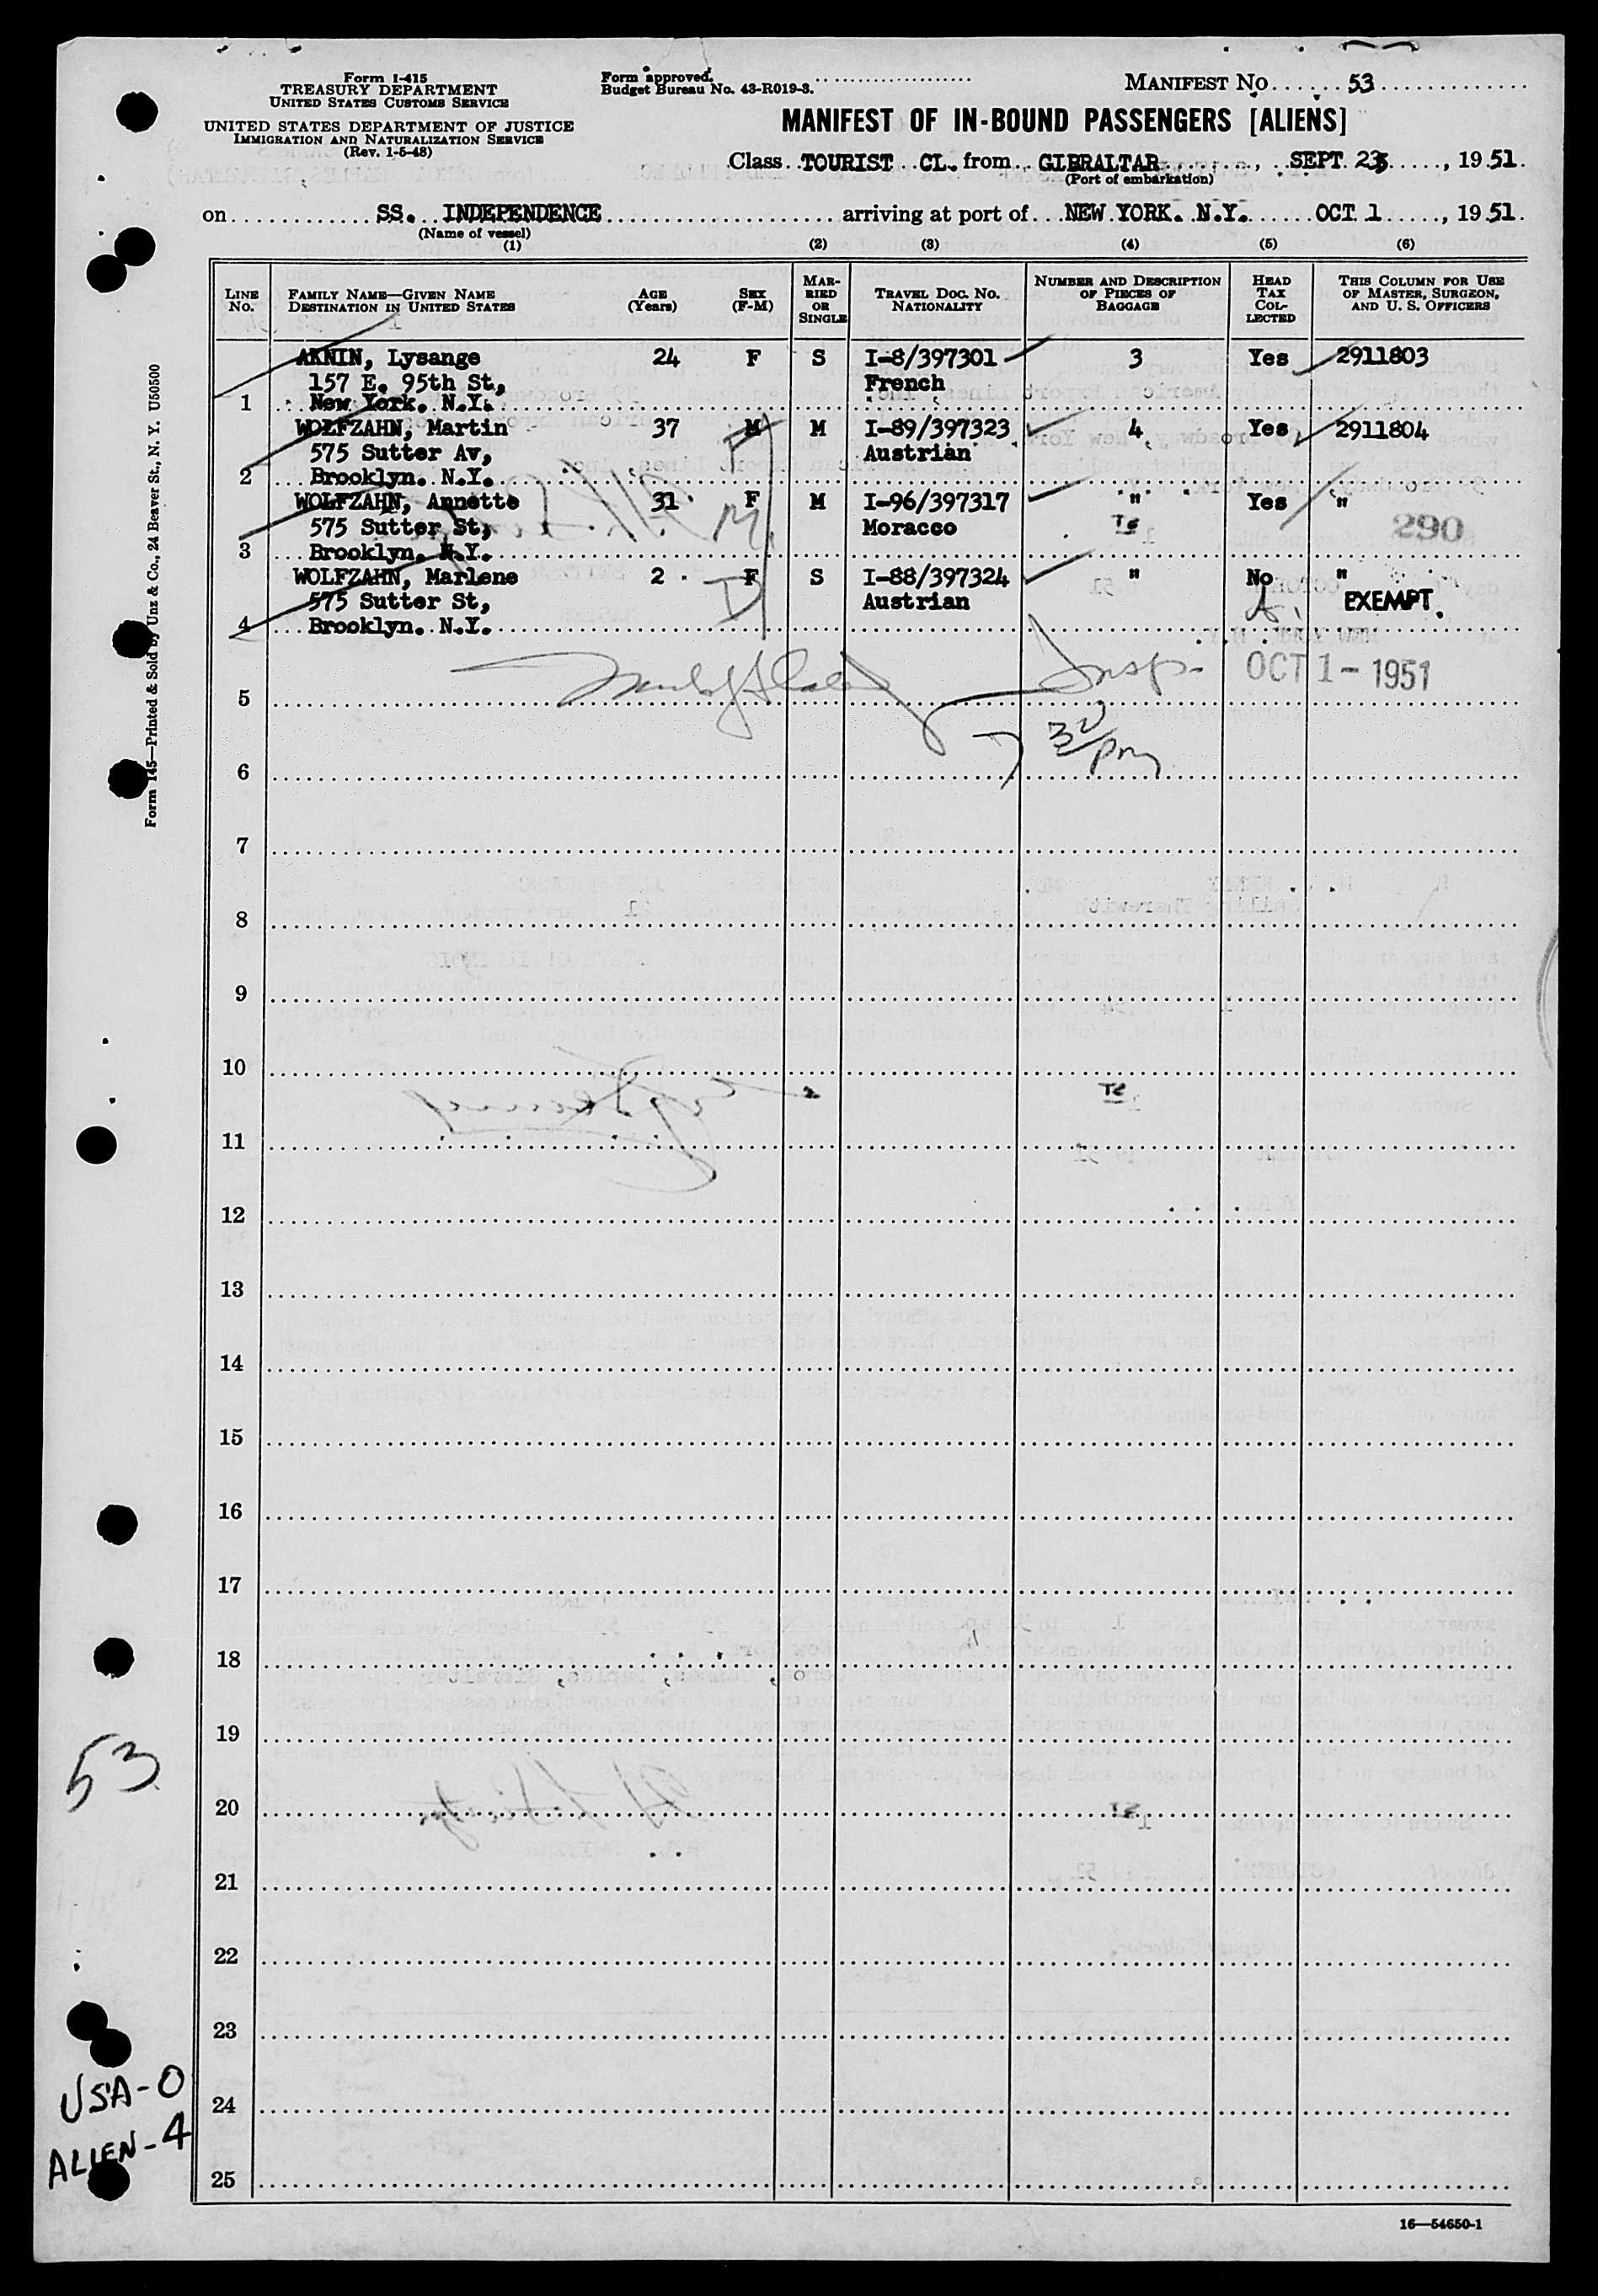 Form I-415
TREASURY DEPARTMENT
UNITED STATES CUSTOMS SERVICE
UNITED STATES DEPARTMENT OF JUSTICE
IMMIGRATION AND NATURALIZATION SERVICE
(Rev. 1-5-48)
Form approved.
Budget Bureau No. 43-R019-3.
MANIFEST NO. 53
MANIFEST OF IN-BOUND PASSENGERS [ALIENS]
Class TOURIST CL. from GIBRALTAR, SEPT 23, 1951.
(Port of embarkation)
on SS. INDEPENDENCE arriving at port of NEW YORK. N.Y. OCT 1, 1951.
(Name of vessel)
(1) (2) (3) (4) (5) (6)
LINE No. FAMILY NAME—GIVEN NAME DESTINATION IN UNITED STATES AGE (Years) SEX (F-M) MARRIED OR SINGLE TRAVEL DOC. NO. NATIONALITY NUMBER AND DESCRIPTION OF PIECES OF BAGGAGE HEAD TAX COLLECTED THIS COLUMN FOR USE OF MASTER, SURGEON, AND U. S. OFFICERS
AKNIN, Lysange 24 F S I-8/397301 3 Yes 2911803
157 E. 95th St, French
1 New York. N.Y.
WOLFZAHN, Martin 37 M M I-89/397323 4 Yes 2911804
575 Sutter Av, Austrian
2 Brooklyn. N.Y.
WOLFZAHN, Annette 31 F M I-96/397317 " Yes "
575 Sutter St, Moracco 290
3 Brooklyn. N.Y.
WOLFZAHN, Marlene 2 F S I-88/397324 " No "
575 Sutter St, Austrian EXEMPT.
4 Brooklyn. N.Y.
Insp. OCT 1 - 1951
5
7 30/pm
6
7
8
9
10
11
12
13
14
15
16
17
18
19
20
21
22
23
24
25
16—54650-1
Form 145—Printed & Sold by Unz & Co., 24 Beaver St., N. Y. U50500
53
USA-0
ALIEN-4